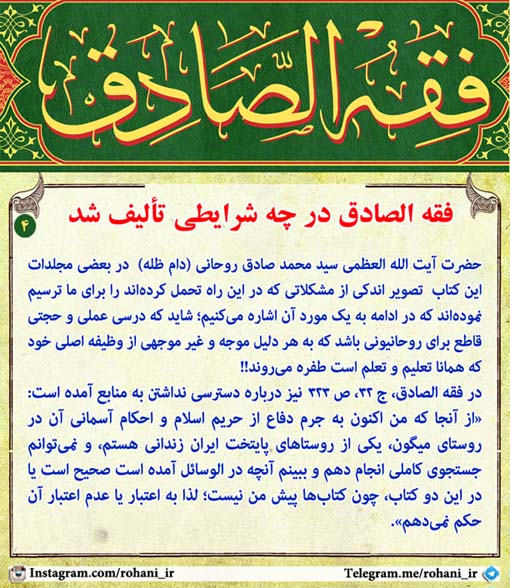 فقه الصَّادِق
فقه الصادق در چه شرایطی تألیف شد
۴
حضرت آیت الله العظمی سید محمد صادق روحانی (دام ظله) در بعضی مجلدات
این کتاب تصویر اندکی از مشکلاتی که در این راه تحمل کرده‌اند را برای ما ترسیم
نموده‌اند که در ادامه به یک مورد آن اشاره می‌کنیم؛ شاید که درسی عملی و حجتی
قاطع برای روحانیونی باشد که به هر دلیل موجه و غیر موجهی از وظیفه اصلی خود
که همانا تعلیم و تعلم است طفره می‌روند!!
در فقه الصادق، ج ۳۲، ص ۳۲۳ نیز درباره دسترسی نداشتن به منابع آمده است:
«از آنجا که من اکنون به جرم دفاع از حریم اسلام و احکام آسمانی آن در
روستای میگون، یکی از روستاهای پایتخت ایران زندانی هستم، و نمی‌توانم
جستجوی کاملی انجام دهم و ببینم آنچه در الوسائل آمده است صحیح است یا
در این دو کتاب، چون کتاب‌ها پیش من نیست؛ لذا به اعتبار یا عدم اعتبار آن
حکم نمی‌دهم».
Instagram.com/rohani_ir
Telegram.me/rohani_ir